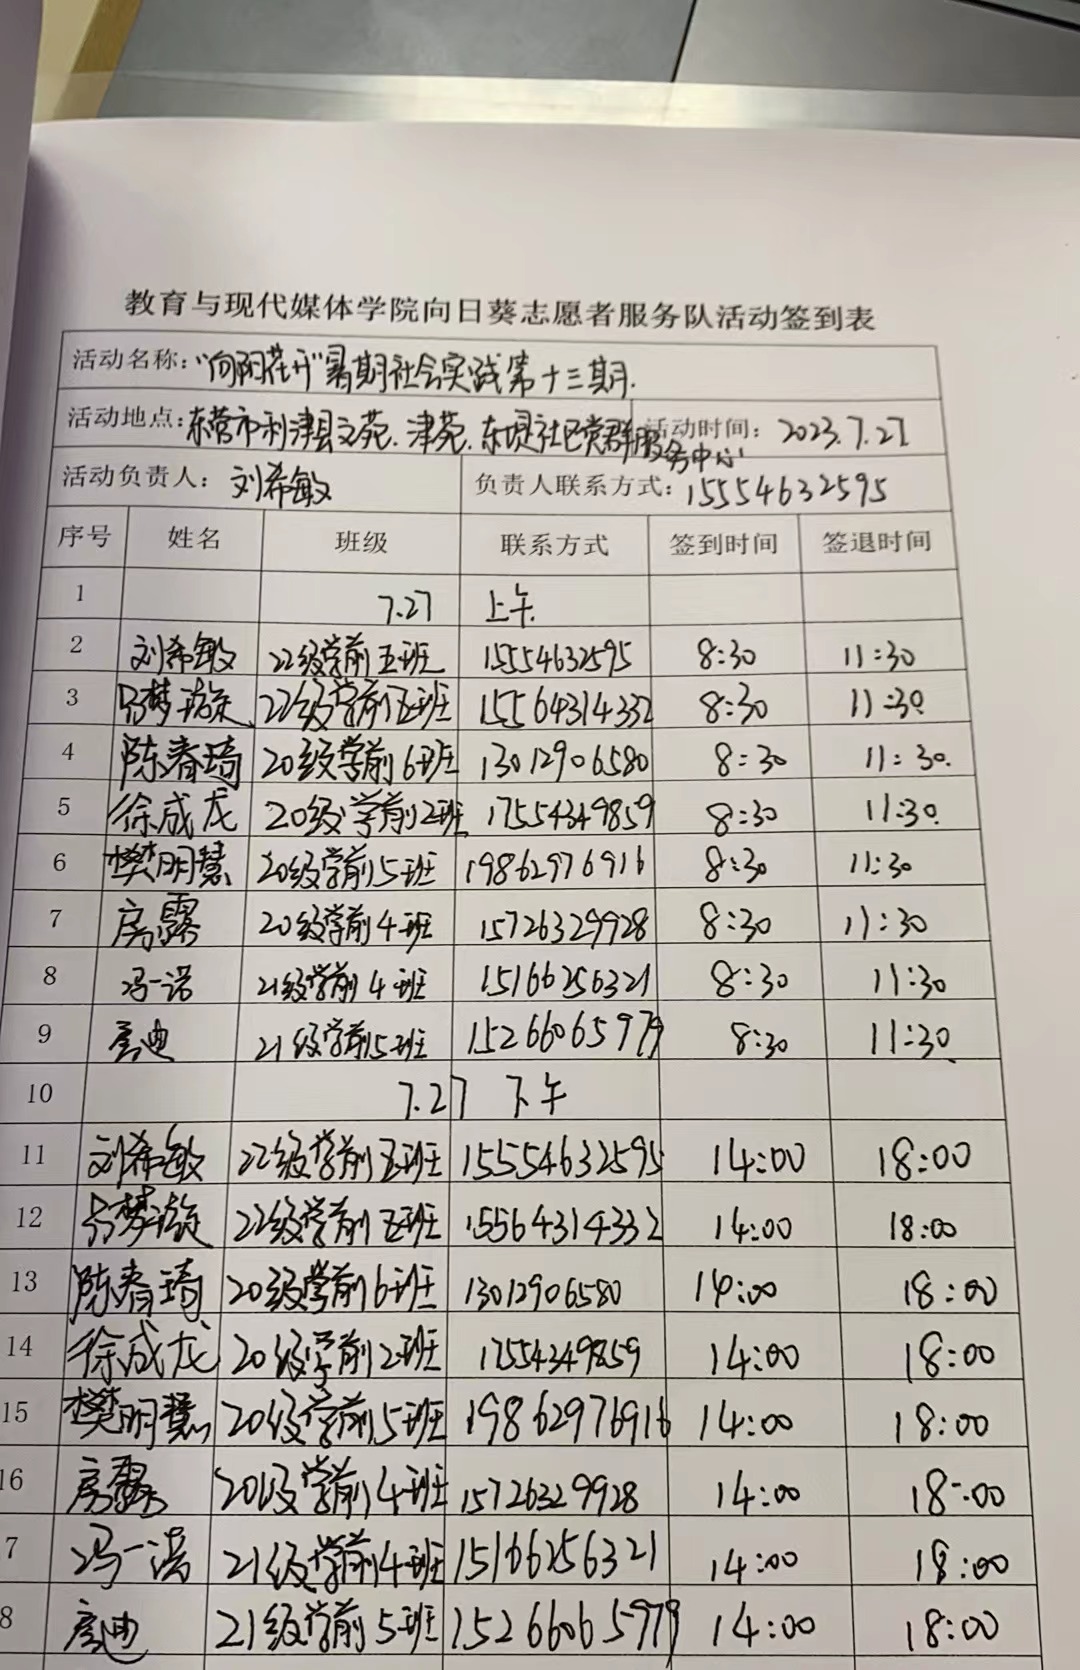 教育与现代媒体学院向日葵志愿者服务队活动签到表
活动名称：“向阳花开”暑期社会实践第十三期.
活动地点：东营市利津县文苑、津苑、东堤社区党群服务中心 活动时间：2023.7.27
活动负责人：刘希敏 负责人联系方式：15554632595
序号 姓名 班级 联系方式 签到时间 签退时间
1 7.27 上午
2 刘希敏 22级学前五班 15554632595 8:30 11:30
3 梦璇 22级学前五班 15564314332 8:30 11:30
4 陈春琦 20级学前6班 13012906580 8:30 11:30.
5 徐成龙 20级学前2班 17554349859 8:30 11:30
6 樊明慧 20级学前5班 19862976916 8:30 11:30
7 房露 20级学前4班 15726329928 8:30 11:30
8 冯一诺 21级学前4班 15166256321 8:30 11:30
9 迪 21级学前5班 15266065979 8:30 11:30
10 7.27 下午
11 刘希敏 22级学前五班 15554632595 14:00 18:00
12 梦璇 22级学前五班 15564314332 14:00 18:00
13 陈春琦 20级学前6班 13012906580 14:00 18:00
14 徐成龙 20级学前2班 17554349859 14:00 18:00
15 樊明慧 20级学前5班 19862976916 14:00 18:00
16 房露 20级学前4班 15726329928 14:00 18:00
7 冯一诺 21级学前4班 15166256321 14:00 18:00
8 迪 21级学前5班 15266065979 14:00 18:00